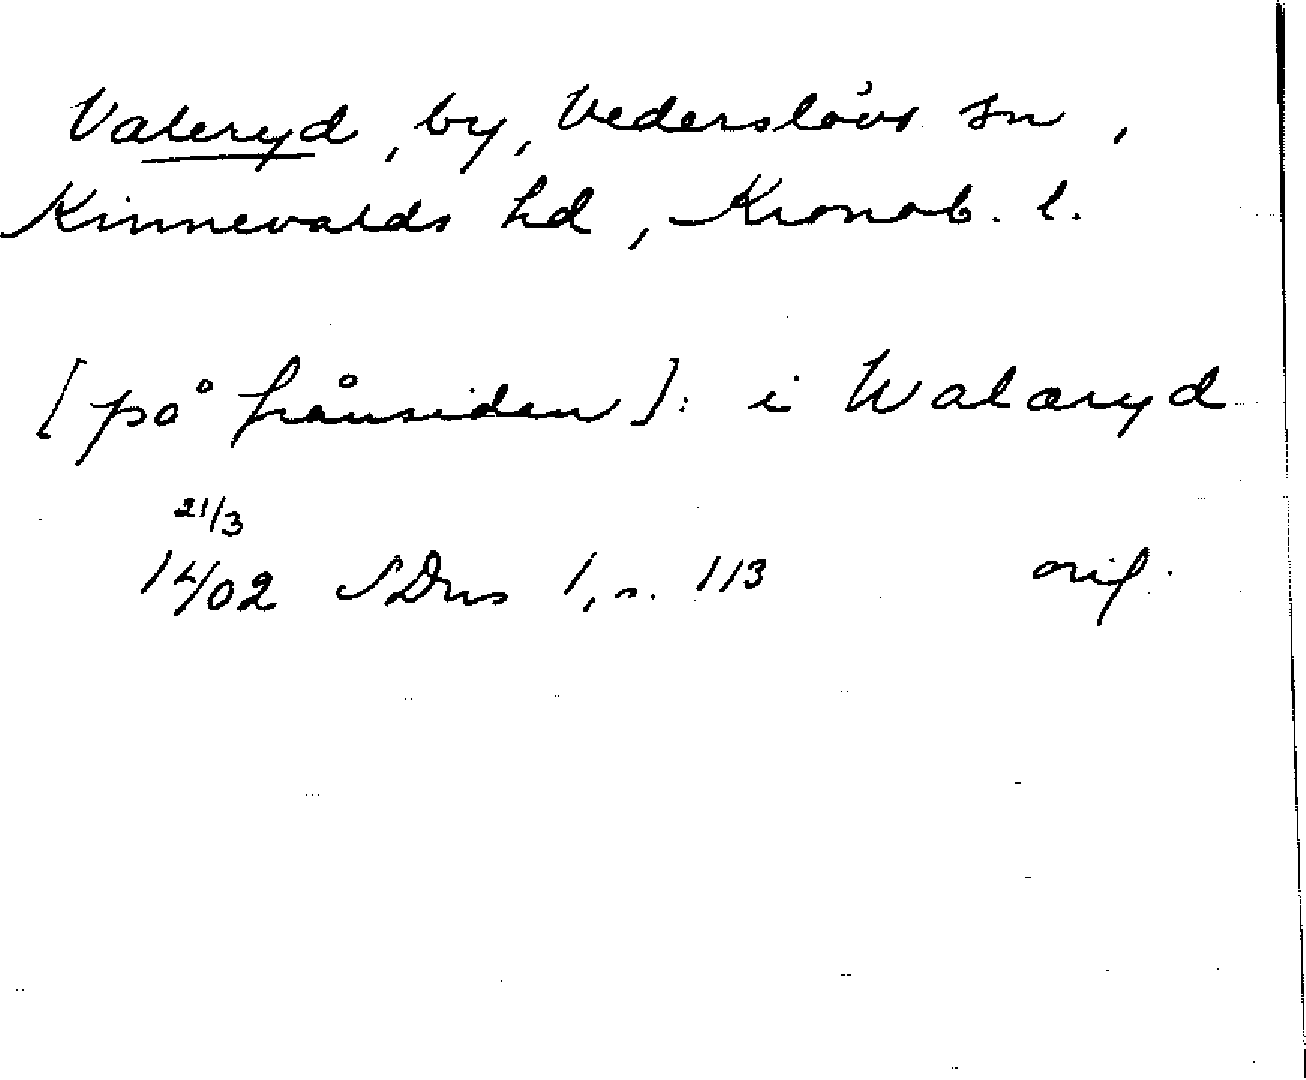 Valeryd, by, Vederslövs sn,
Kinnevalds hd, Kronob. l.
[på frånsidan]: i Walæryd
21/3
1402 SDns 1, s. 113 orig.